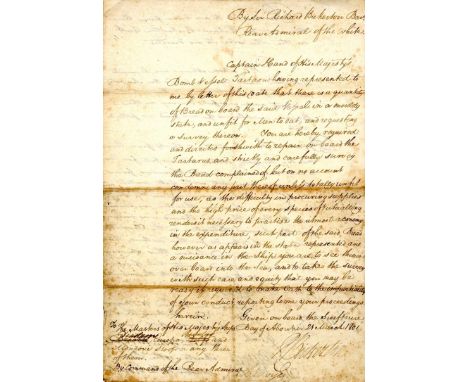 By Sir Richard Bickerton Bart
Rear Admiral of the White
Captain Hand of His Majesty's
Bomb Vessel Tartarus having represented to
me by letter of this date that there is a quantity
of Bread on board the said Vessel in a mouldy
state, and unfit for Men to eat, and requesting
a survey thereon. You are hereby required
and directed forthwith to repair on board the
Tartarus and strictly and carefully survey
the Bread complained of, but on no account
condemn any part thereof unless totally unfit
for use, as the difficulty in procuring supplies
and the high price of every species of Victualling
renders it necessary to practice the utmost œconomy
in the expenditure, such part of the said Bread
however as appears in the state represented and
a nuisance in the Ship you are to see thrown
over board into the Sea, and to take the survey
with such care and equity that you may be
ready if required to make oath to the impartiality
of your conduct reporting to me your proceedings
herein. Given on board the Swiftsure
Day of March 1801
To The Masters of His Majesty's Ships
and
any three
of them.
By Command of the Rear Admiral